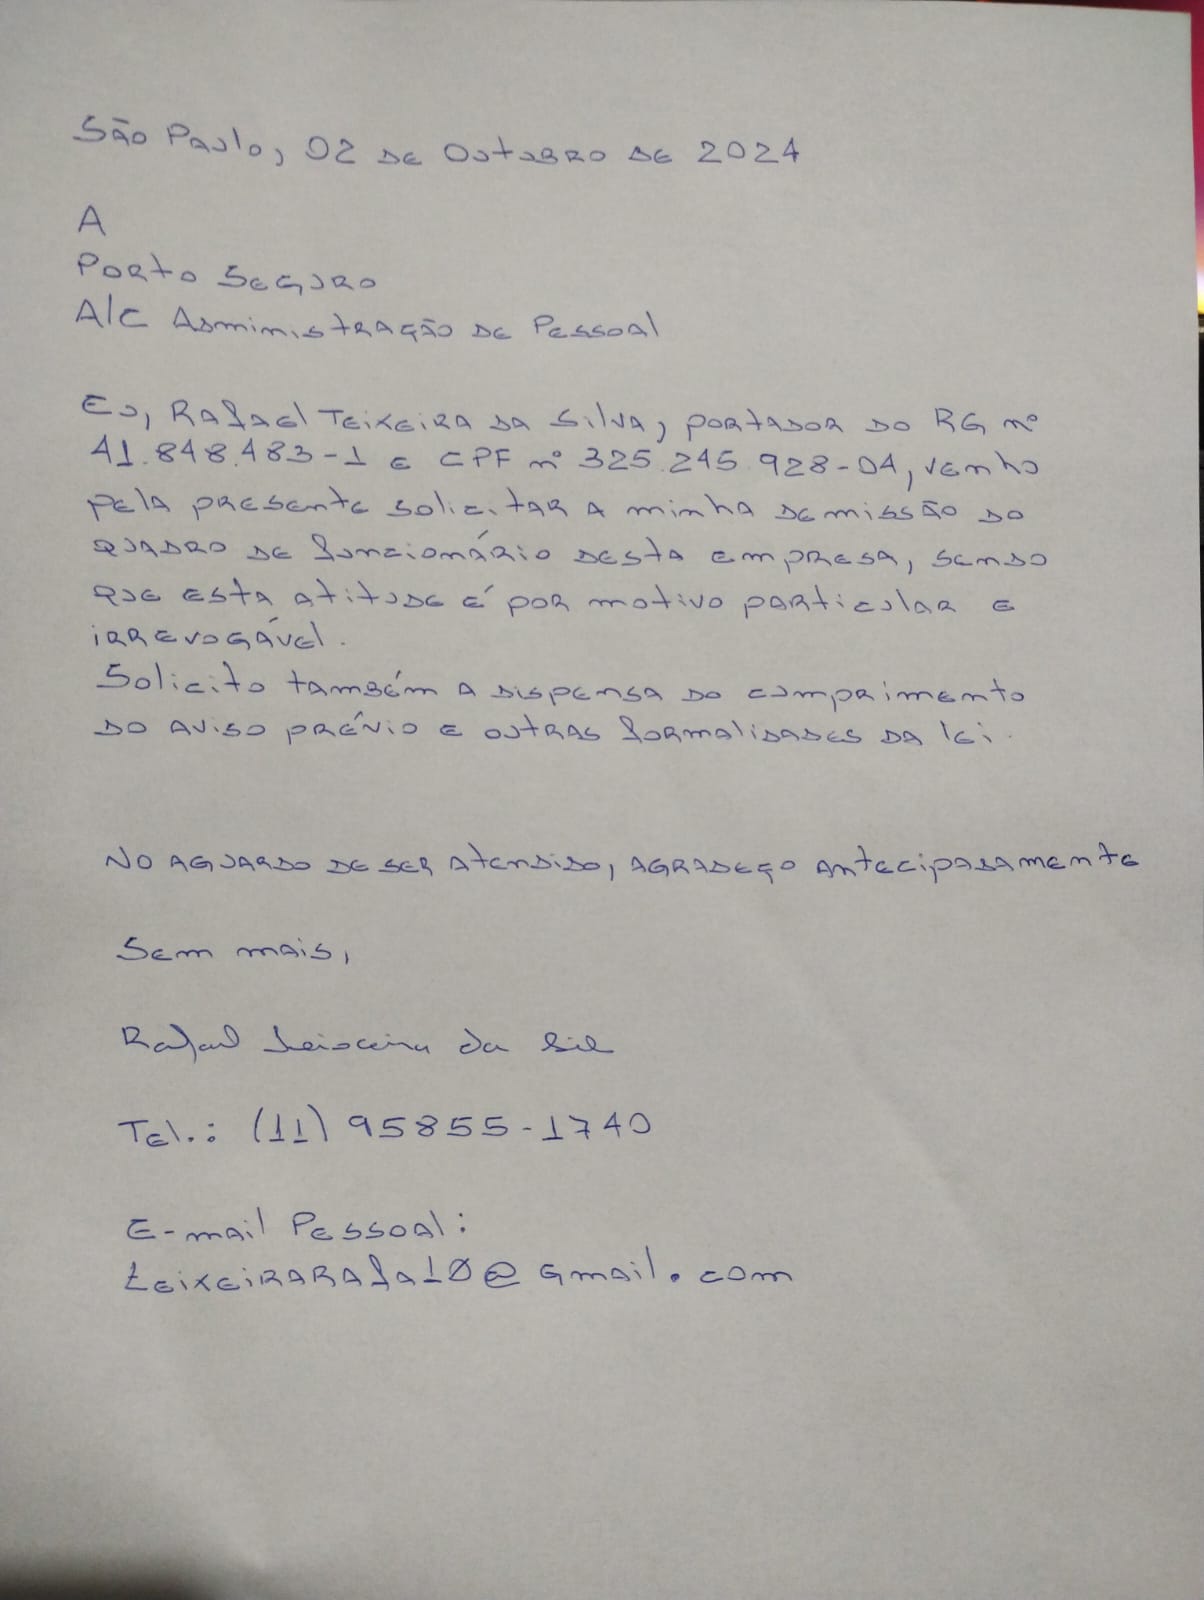 São Paulo, 02 de Outubro de 2024
A
Porto Seguro
A/C Administração de Pessoal
Eu, Rafael Teixeira da Silva, portador do RG nº
41.848.483-1 e CPF nº 325.245.928-04, venho
pela presente solicitar a minha demissão do
quadro de funcionário desta empresa, sendo
que esta atitude é por motivo particular e
irrevogável.
Solicito também a dispensa do comprimento
do aviso prévio e outras formalidades da lei.
No aguardo de ser atendido, agradeço antecipadamente
Sem mais,
Rafael Teixeira da Sil
Tel.: (11) 95855-1740
E-mail Pessoal:
teixeirarafa10@gmail.com